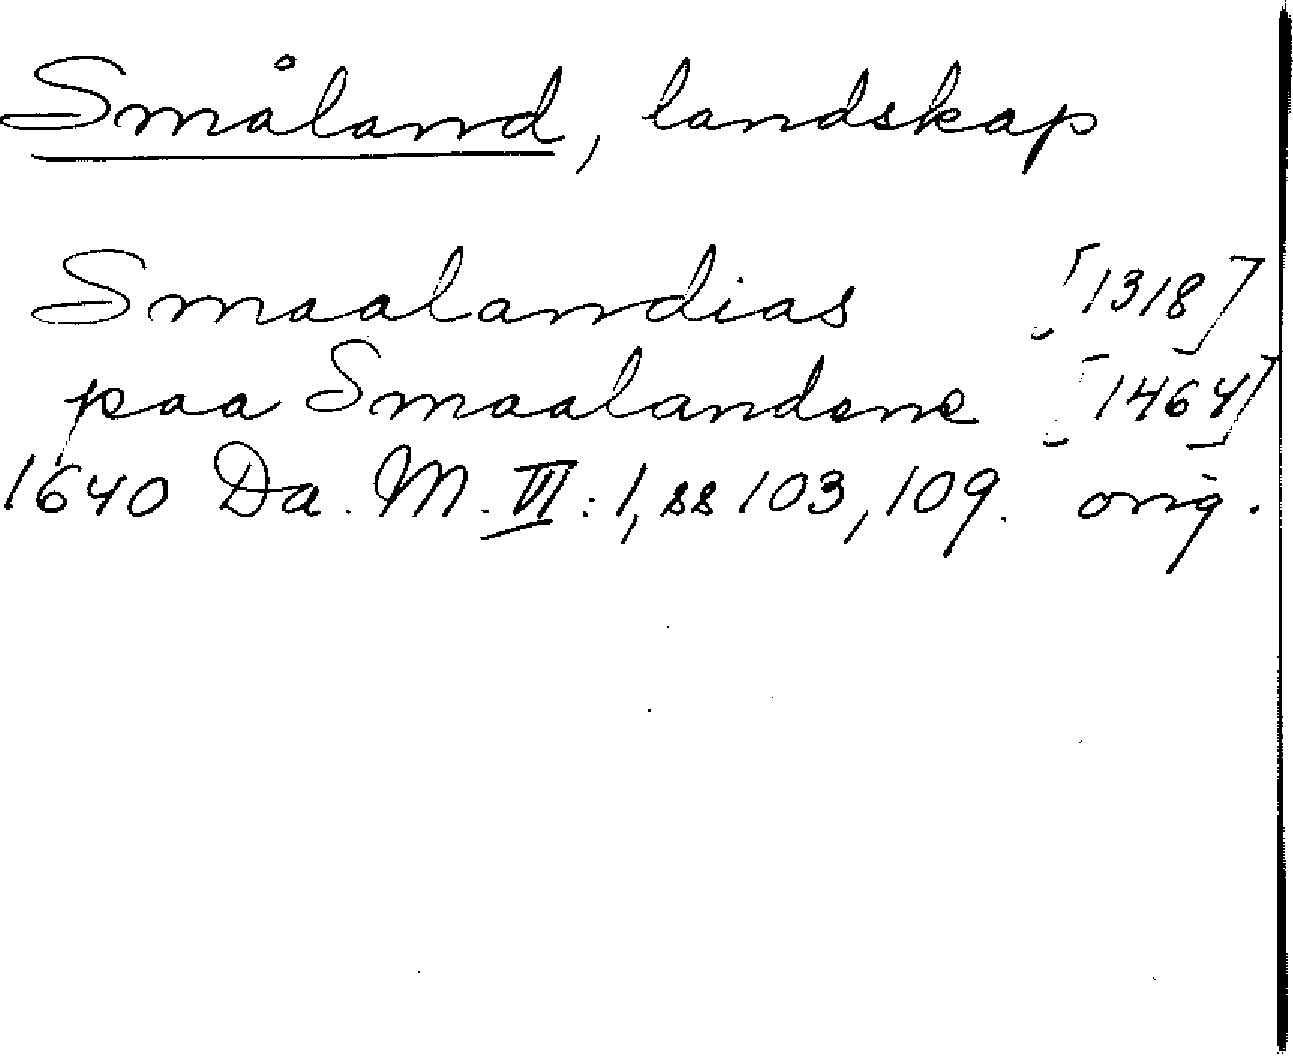 Småland, landskap
Smaalandias [1318]
paa Smaalandene [1464]
1640 Da. M. VI: 1, ss 103, 109. orig.